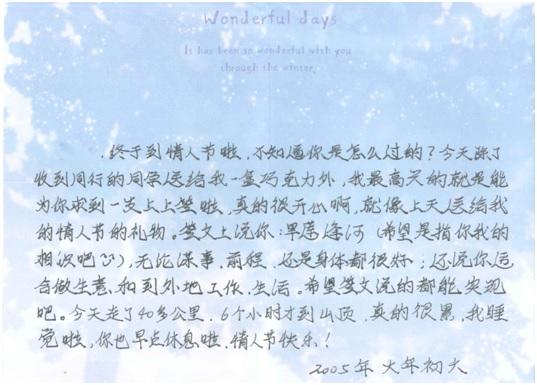 Wonderful days
It has been so wonderful with you
through the winter.
终于到情人节啦,不知道你是怎么过的?今天除了
收到同行的同学送给我一盒巧克力外,我最高兴的就是能
为你求到一支上上签啦,真的很开心啊,就像上天送给我
的情人节的礼物。签文上说你:早逢 (希望是指你我的
相识吧),无论谋事、前程、还是身体都很好;还说你适
合做生意、和到外地工作、生活。希望签文说的都能实现
吧。今天走了40多公里,6个小时才到山顶,真的很累,我睡
觉啦,你也早点休息啦,情人节快乐!
2005年 大年初六